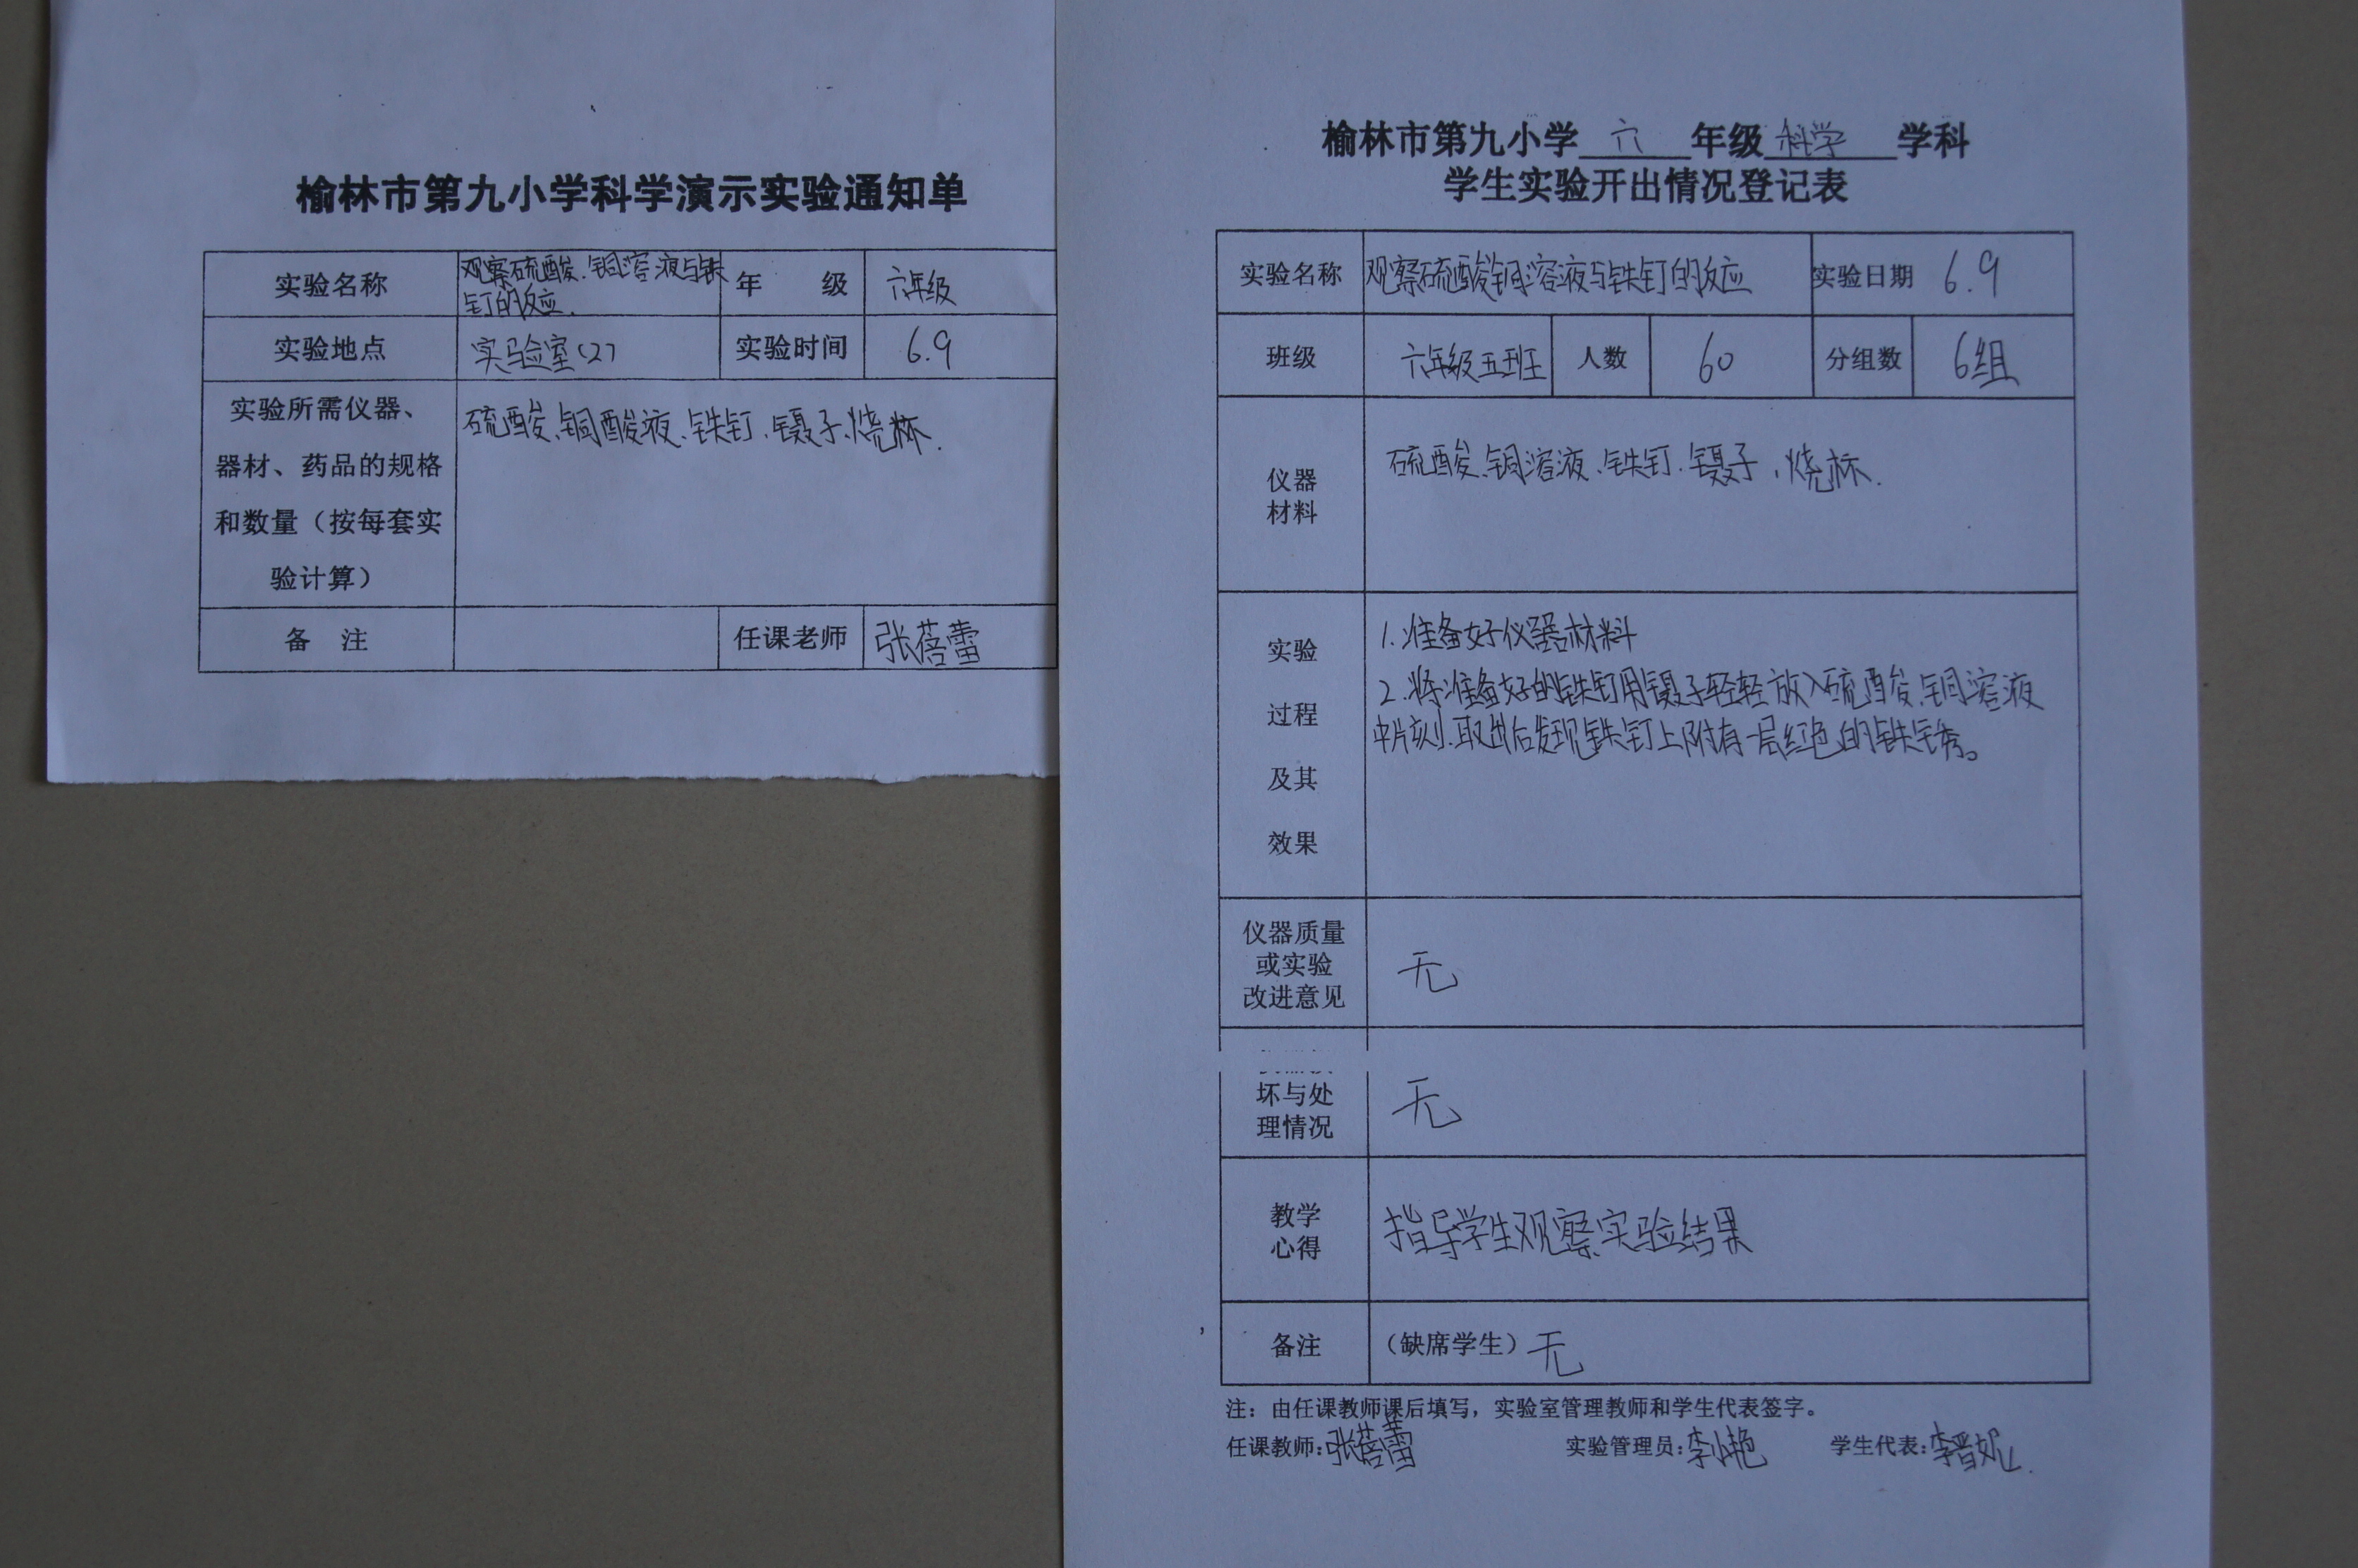 榆林市第九小学科学演示实验通知单
实验名称 观察硫酸、铜溶液与铁 年 级 六年级
钉的反应.
实验地点 实验室(2) 实验时间 6.9
实验所需仪器、 硫酸、铜酸液、铁钉、镊子、烧杯.
器材、药品的规格
和数量（按每套实
验计算）
备 注 任课老师 张蓓蕾
榆林市第九小学 六 年级 科学 学科
学生实验开出情况登记表
实验名称 观察硫酸铜溶液与铁钉的反应 实验日期 6.9
班级 六年级五班 人数 60 分组数 6组
仪器 硫酸、铜溶液、铁钉、镊子、烧杯.
材料
实验 1.准备好仪器材料
2.将准备好的铁钉用镊子轻轻放入硫酸、铜溶液
过程 中片刻.取出后发现铁钉上附有一层红色的铁锈。
及其
效果
仪器质量
或实验 无
改进意见
坏与处 无
理情况
教学 指导学生观察实验结果
心得
备注 （缺席学生）无
注：由任课教师课后填写，实验室管理教师和学生代表签字。
任课教师:张蓓蕾 实验管理员:李小艳 学生代表:李晋妮.